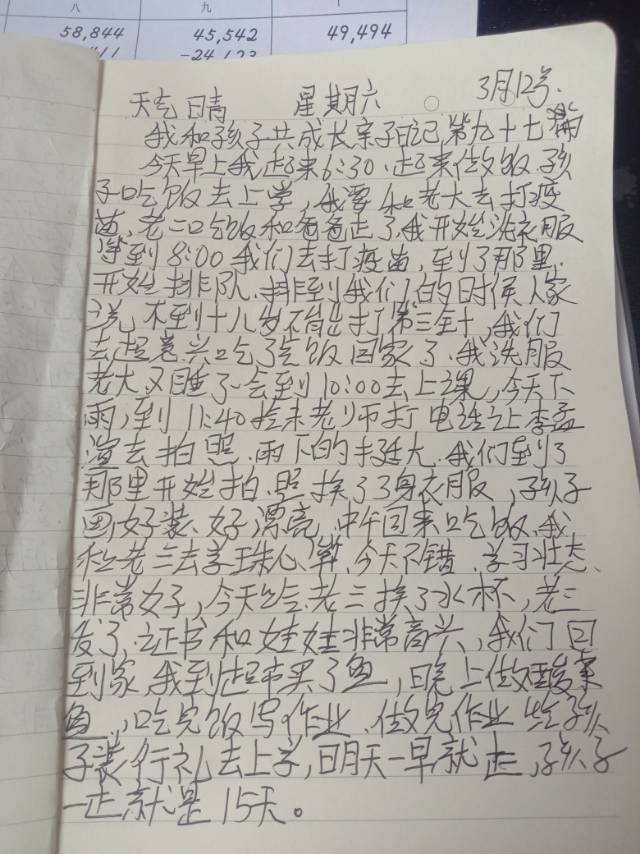 八 九
58,844 45,542 49,494
-24,123
天气晴 星期六 3月12号
我和孩子共成长亲子日记,第九十七篇
今天早上我起来6:30.起来做饭孩
子吃饭去上学,我要和老大去打疫
苗,老二吃饭和爸爸走了.我开始洗衣服
等到8:00我们去打疫苗,到了那里.
开始排队.排到我们的时候人家
说,不到十八岁不能打第三针,我们
去超意兴吃了吃饭回家了.我洗服
老大又睡了一会到10:00去上课,今天下
雨,到11:40 老师打电话让李孟
演去拍照.雨下的挺大.我们到了
那里开始拍.照换了3身衣服,孩子
画好装、好漂亮.中午回来吃饭.我
和老三去学珠心算.今天不错.学习壮态
非常好,今天给老三换了水杯,老三
发了证书和娃娃非常高兴,我们回
到家.我到超市买了鱼,晚上做酸菜
鱼,吃完饭写作业.做完作业给孩
子装行礼去上学,明天一早就走,孩子
一走就是15天。